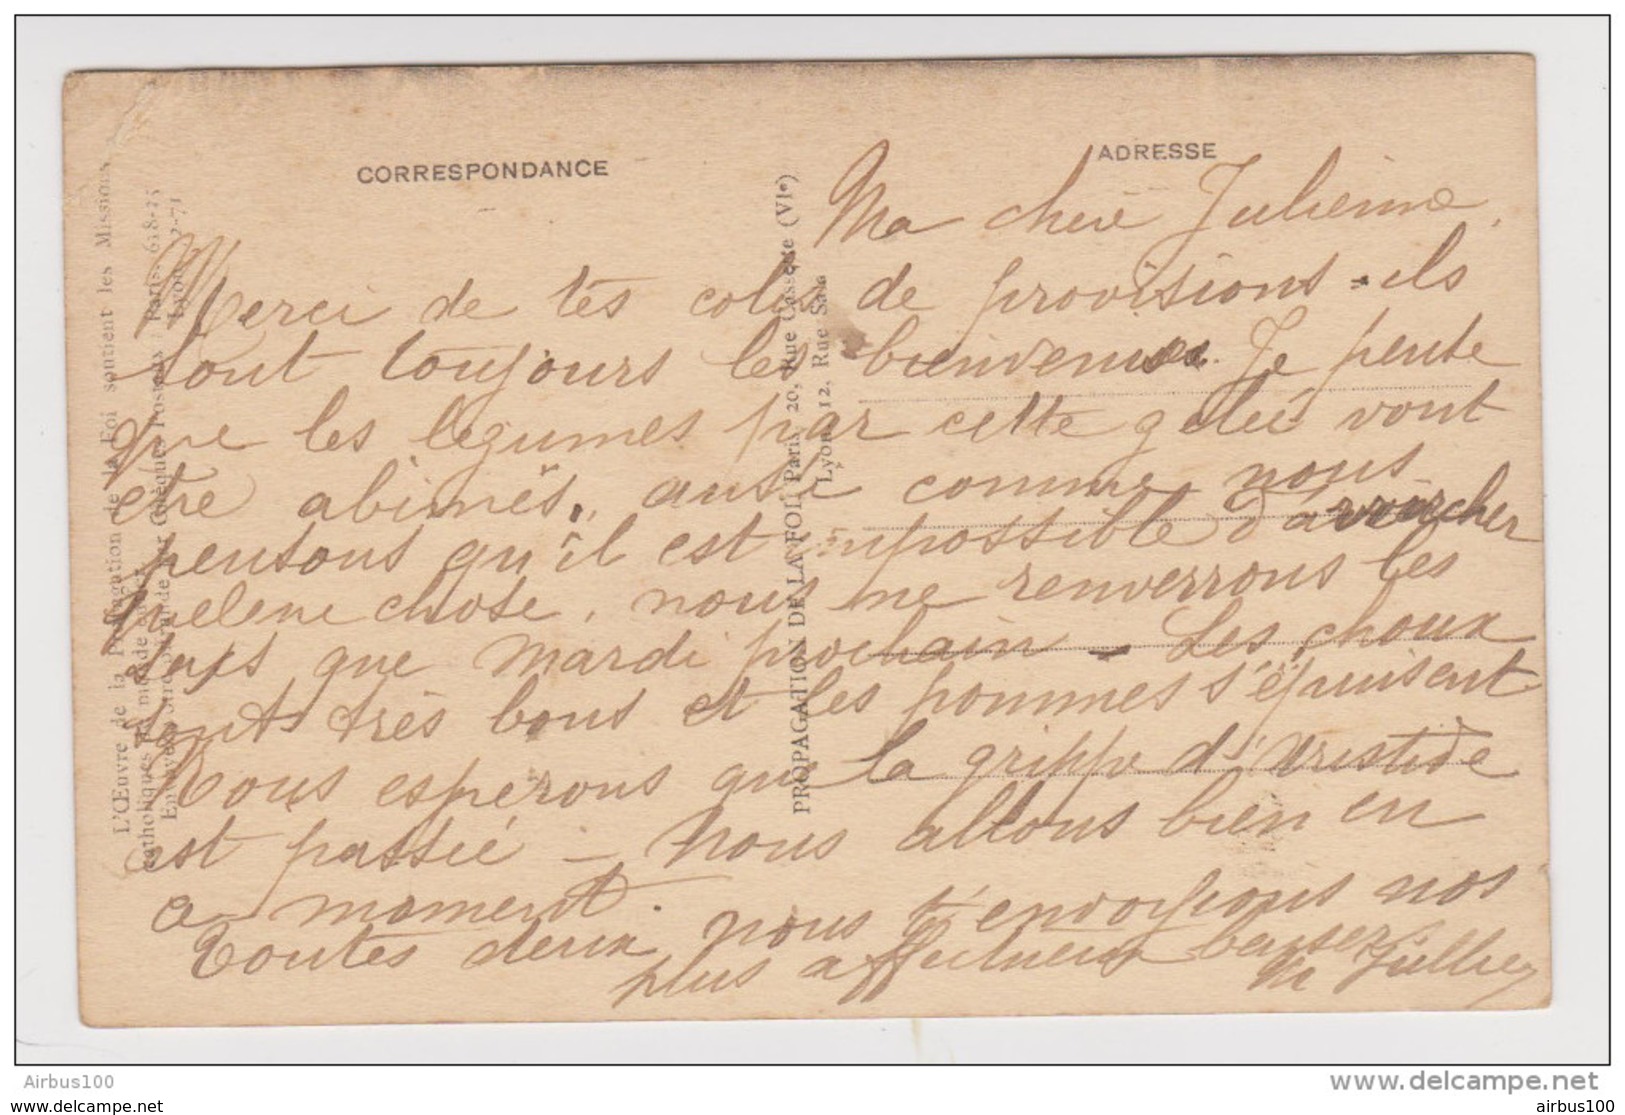 CORRESPONDANCE
ADRESSE
Ma cheré Julienne,
Merci de tes colis de provisions - ils
sont toujours les bienvenus. Je pense
que les légumes par cette gelée vont
etre abimés, aussi comme nous
pensons qu'il est impossible d'arracher
quelque chose, nous ne renverrons les
sacs que Mardi prochain - Les choux
sont très bons et les pommes s'épuisent
Nous espérons que la grippe d'Aristide
est passée - Nous allons bien en
ce moment.
Toutes deux nous t'envoyions nos
plus affectueux baisers
M Jullie
L'Œuvre de la Propagation de la Foi soutient les Missions
catholiques du monde entier.
Envoyez votre offrande par Chèques Postaux : Paris 618-75
Lyon
PROPAGATION DE LA FOI Paris, 20, Rue Cassette (VIe)
Lyon 12, Rue Sala
Airbus100
www.delcampe.net
airbus100
www.delcampe.net
airbus100